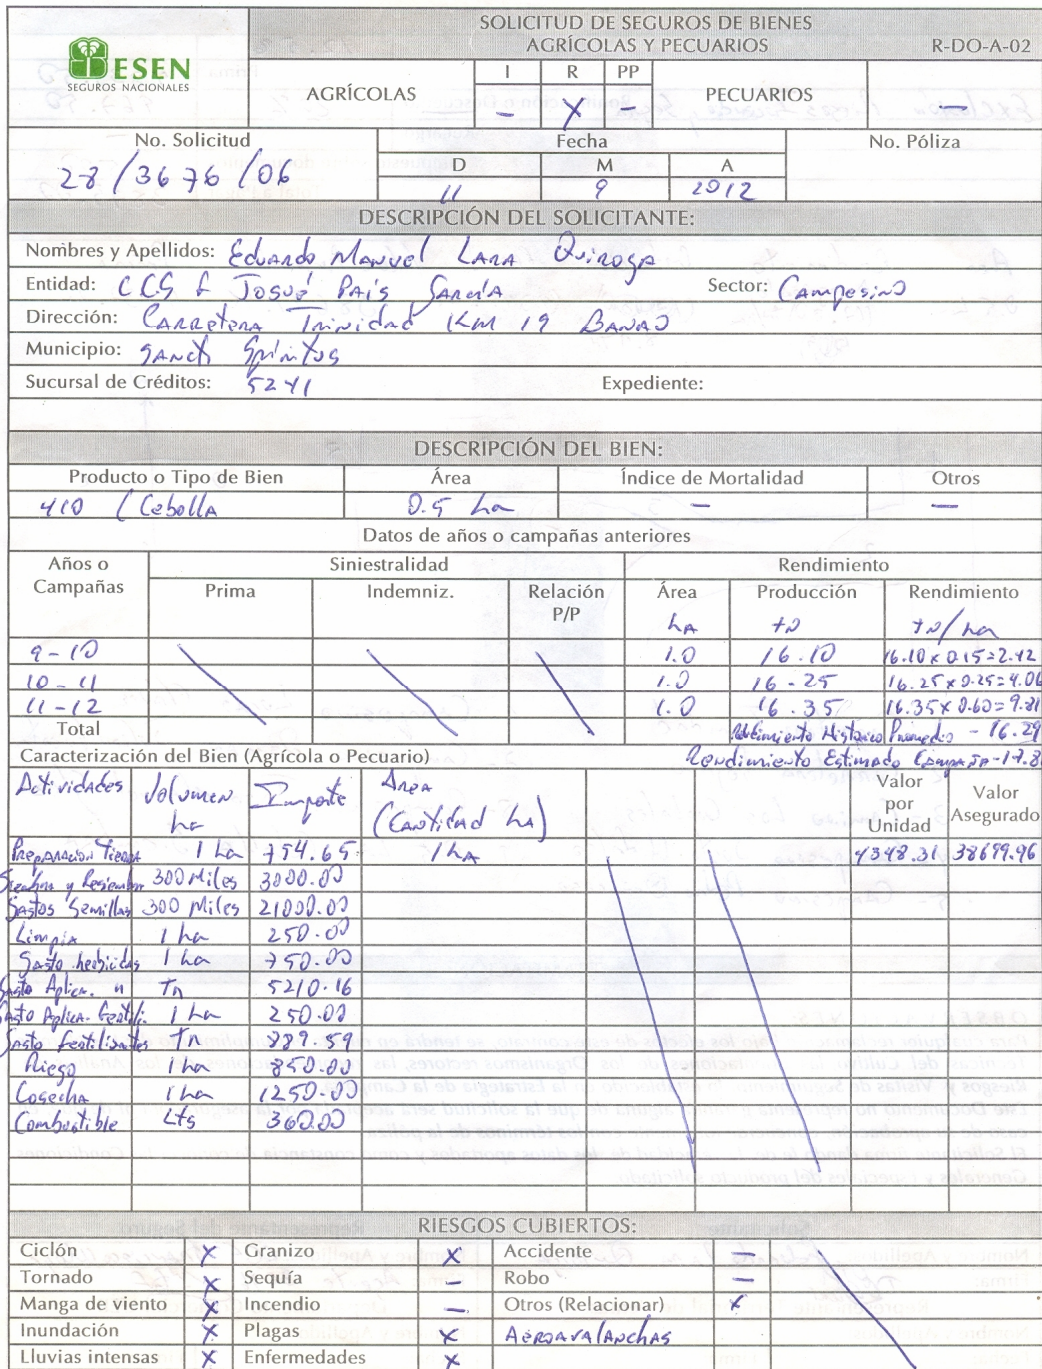 ESEN
SEGUROS NACIONALES
SOLICITUD DE SEGUROS DE BIENES
AGRÍCOLAS Y PECUARIOS
R-DO-A-02
AGRÍCOLAS
I R PP
— X —
PECUARIOS —
No. Solicitud
28/3676/06
Fecha
D M A
11 9 2012
No. Póliza
DESCRIPCIÓN DEL SOLICITANTE:
Nombres y Apellidos: Eduardo Manuel Lara Quiroga
Entidad: CCS f Josué País García Sector: Campesino
Dirección: Carretera Trinidad Km 19 Banao
Municipio: Sancti Spíritus
Sucursal de Créditos: 5241 Expediente:
DESCRIPCIÓN DEL BIEN:
Producto o Tipo de Bien Área Índice de Mortalidad Otros
410 / Cebolla 0.5 ha — —
Datos de años o campañas anteriores
Años o Campañas Siniestralidad Rendimiento
Prima Indemniz. Relación P/P Área Producción Rendimiento
ha tn tn/ha
9-10 1.0 16.10 16.10 x 0.15=2.42
10-11 1.0 16-25 16.25 x 0.25=4.06
11-12 1.0 16.35 16.35 x 0.60=9.81
Total Rendimiento Histórico Promedio - 16.29
Caracterización del Bien (Agrícola o Pecuario) Rendimiento Estimado Campaña-17.8
Actividades Volumen ha Importe Area (Cantidad ha) Valor por Unidad Valor Asegurado
Preparación Tierra 1 ha 754.65 1 ha 4348.31 38699.96
Siembra y Resiembra 300 Miles 3000.00
Gastos Semillas 300 Miles 21000.00
Limpia 1 ha 250.00
Gasto herbicidas 1 ha 750.00
Gasto Aplica. " Tn 5210.16
Gasto Aplica. Fertili. 1 ha 250.00
Gasto Fertilisantes Tn 889.59
Riego 1 ha 850.00
Cosecha 1 ha 1250.00
Combustible Lts 360.00
RIESGOS CUBIERTOS:
Ciclón X Granizo X Accidente —
Tornado X Sequía — Robo —
Manga de viento X Incendio — Otros (Relacionar) X
Inundación X Plagas X Aeroavalanchas
Lluvias intensas X Enfermedades X